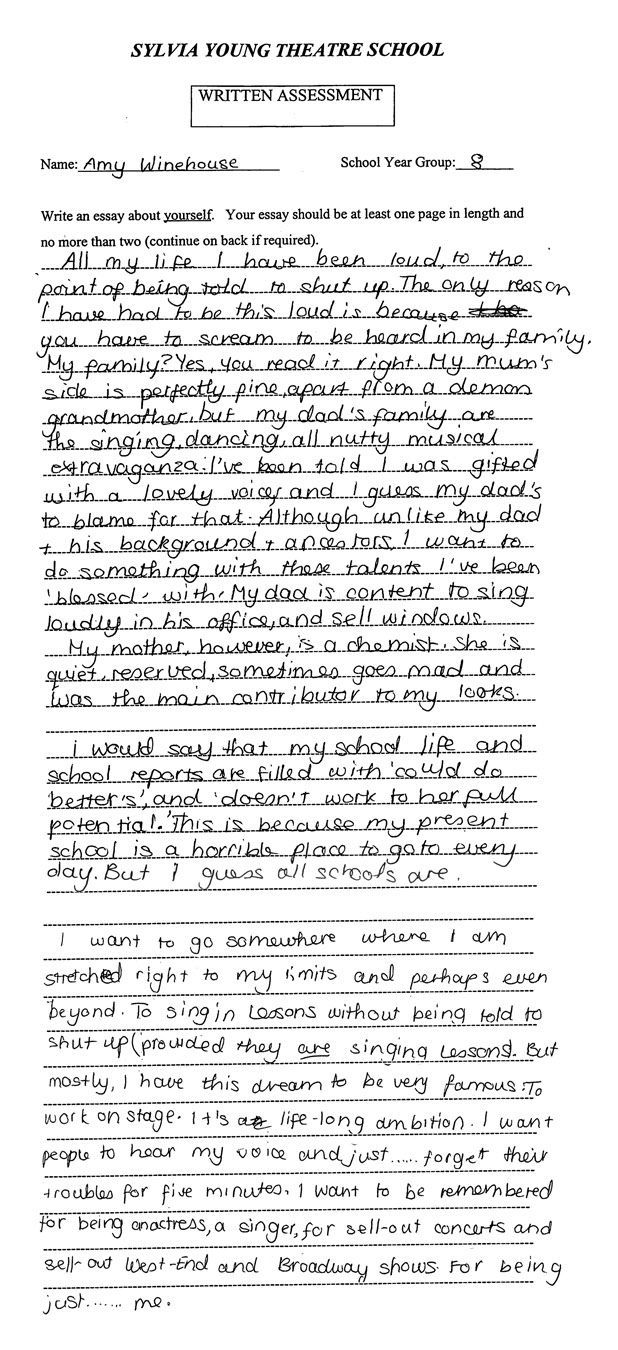 SYLVIA YOUNG THEATRE SCHOOL
WRITTEN ASSESSMENT
Name: Amy Winehouse School Year Group: 8
Write an essay about yourself. Your essay should be at least one page in length and
no more than two (continue on back if required).
All my life I have been loud, to the
point of being told to shut up. The only reason
I have had to be this loud is because the
you have to scream to be heard in my family.
My family? Yes, you read it right. My mum's
side is perfectly fine, apart from a demon
grandmother, but my dad's family are
the singing, dancing, all nutty musical
extravaganza. I've been told I was gifted
with a lovely voice, and I guess my dad's
to blame for that. Although unlike my dad
+ his background + ancestors, I want to
do something with these talents I've been
'blessed' with. My dad is content to sing
loudly in his office, and sell windows.
My mother, however, is a chemist. She is
quiet, reserved, sometimes goes mad and
was the main contributor to my looks.
I would say that my school life and
school reports are filled with 'could do
better's', and 'doesn't work to her full
potential.' This is because my present
school is a horrible place to go to every
day. But I guess all schools are.
I want to go somewhere where I am
stretched right to my limits and perhaps even
beyond. To sing in Lessons without being told to
shut up (provided they are singing Lessons). But
mostly, I have this dream to be very famous. To
work on stage. It's a life-long ambition. I want
people to hear my voice and just..... forget their
troubles for five minutes. I want to be remembered
for being an actress, a singer, for sell-out concerts and
sell-out West-End and Broadway shows. For being
just...... me.